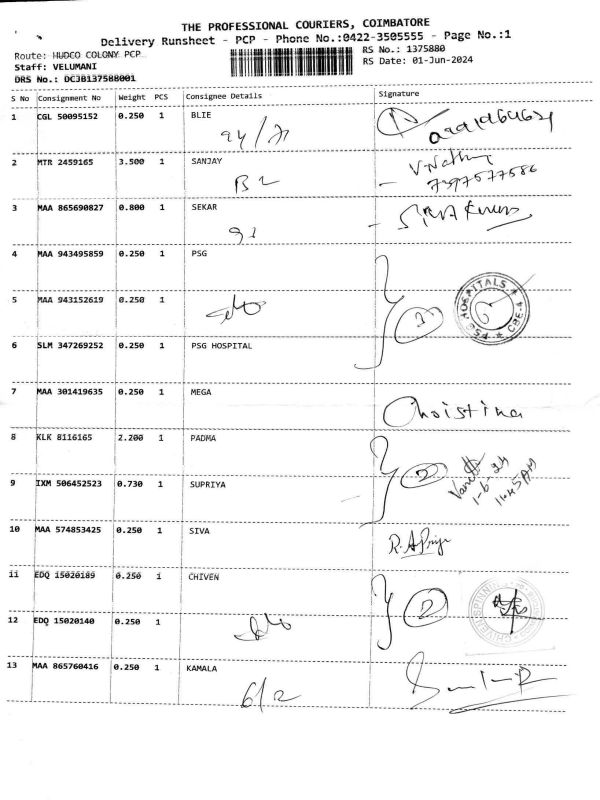 THE PROFESSIONAL COURIERS, COIMBATORE
Delivery Runsheet - PCP - Phone No.:0422-3505555 - Page No.:1
Route: HUDCO COLONY PCP
RS No.: 1375880
Staff: VELUMANI
RS Date: 01-Jun-2024
DRS No.: DCJB137588001
S No Consignment No Weight PCS Consignee Details Signature
1 CGL 50095152 0.250 1 BLIE
94/71
2 MTR 2459165 3.500 1 SANJAY
B2
7397577586
3 MAA 865690827 0.800 1 SEKAR
91
4 MAA 943495859 0.250 1 PSG
PSG HOSPITALS * CBE-4 *
5 MAA 943152619 0.250 1
6 SLM 347269252 0.250 1 PSG HOSPITAL
7 MAA 301419635 0.250 1 MEGA
Christina
8 KLK 8116165 2.200 1 PADMA
2
1-6-24
9 IXM 506452523 0.730 1 SUPRIYA
10 MAA 574853425 0.250 1 SIVA
11 EDQ 15020189 0.250 1 CHIVEN
2
12 EDQ 15020140 0.250 1
13 MAA 865760416 0.250 1 KAMALA
6/2